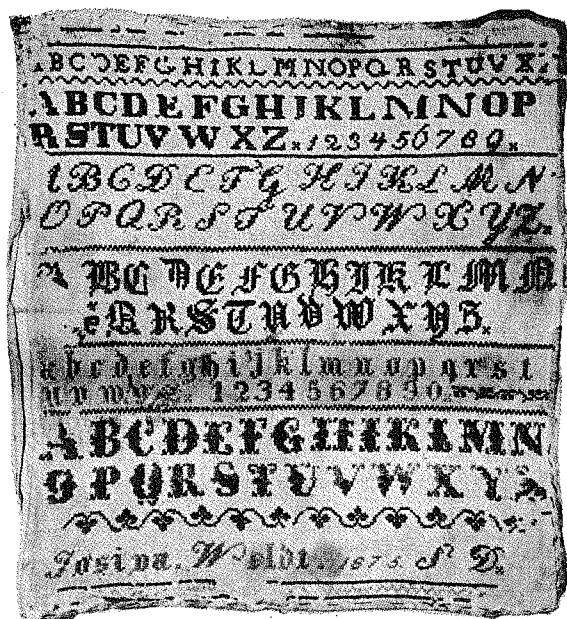 A B C D E F G H I K L M N O P Q R S T U V X
A B C D E F G H I K L M N O P
R S T U V W X Z x 1 2 3 4 5 6 7 8 9 x
B C D E F G H I K L M N
O P Q R S T U V W X Y Z
B C D E F G H I K L M N
Q R S T U V W X Y Z
a b c d e f g h i j k l m n o p q r s t
1 2 3 4 5 6 7 8 9 0
A B C D E F G H I K L M N
P Q R S T U V W X Y
Josina. 1875 S D.